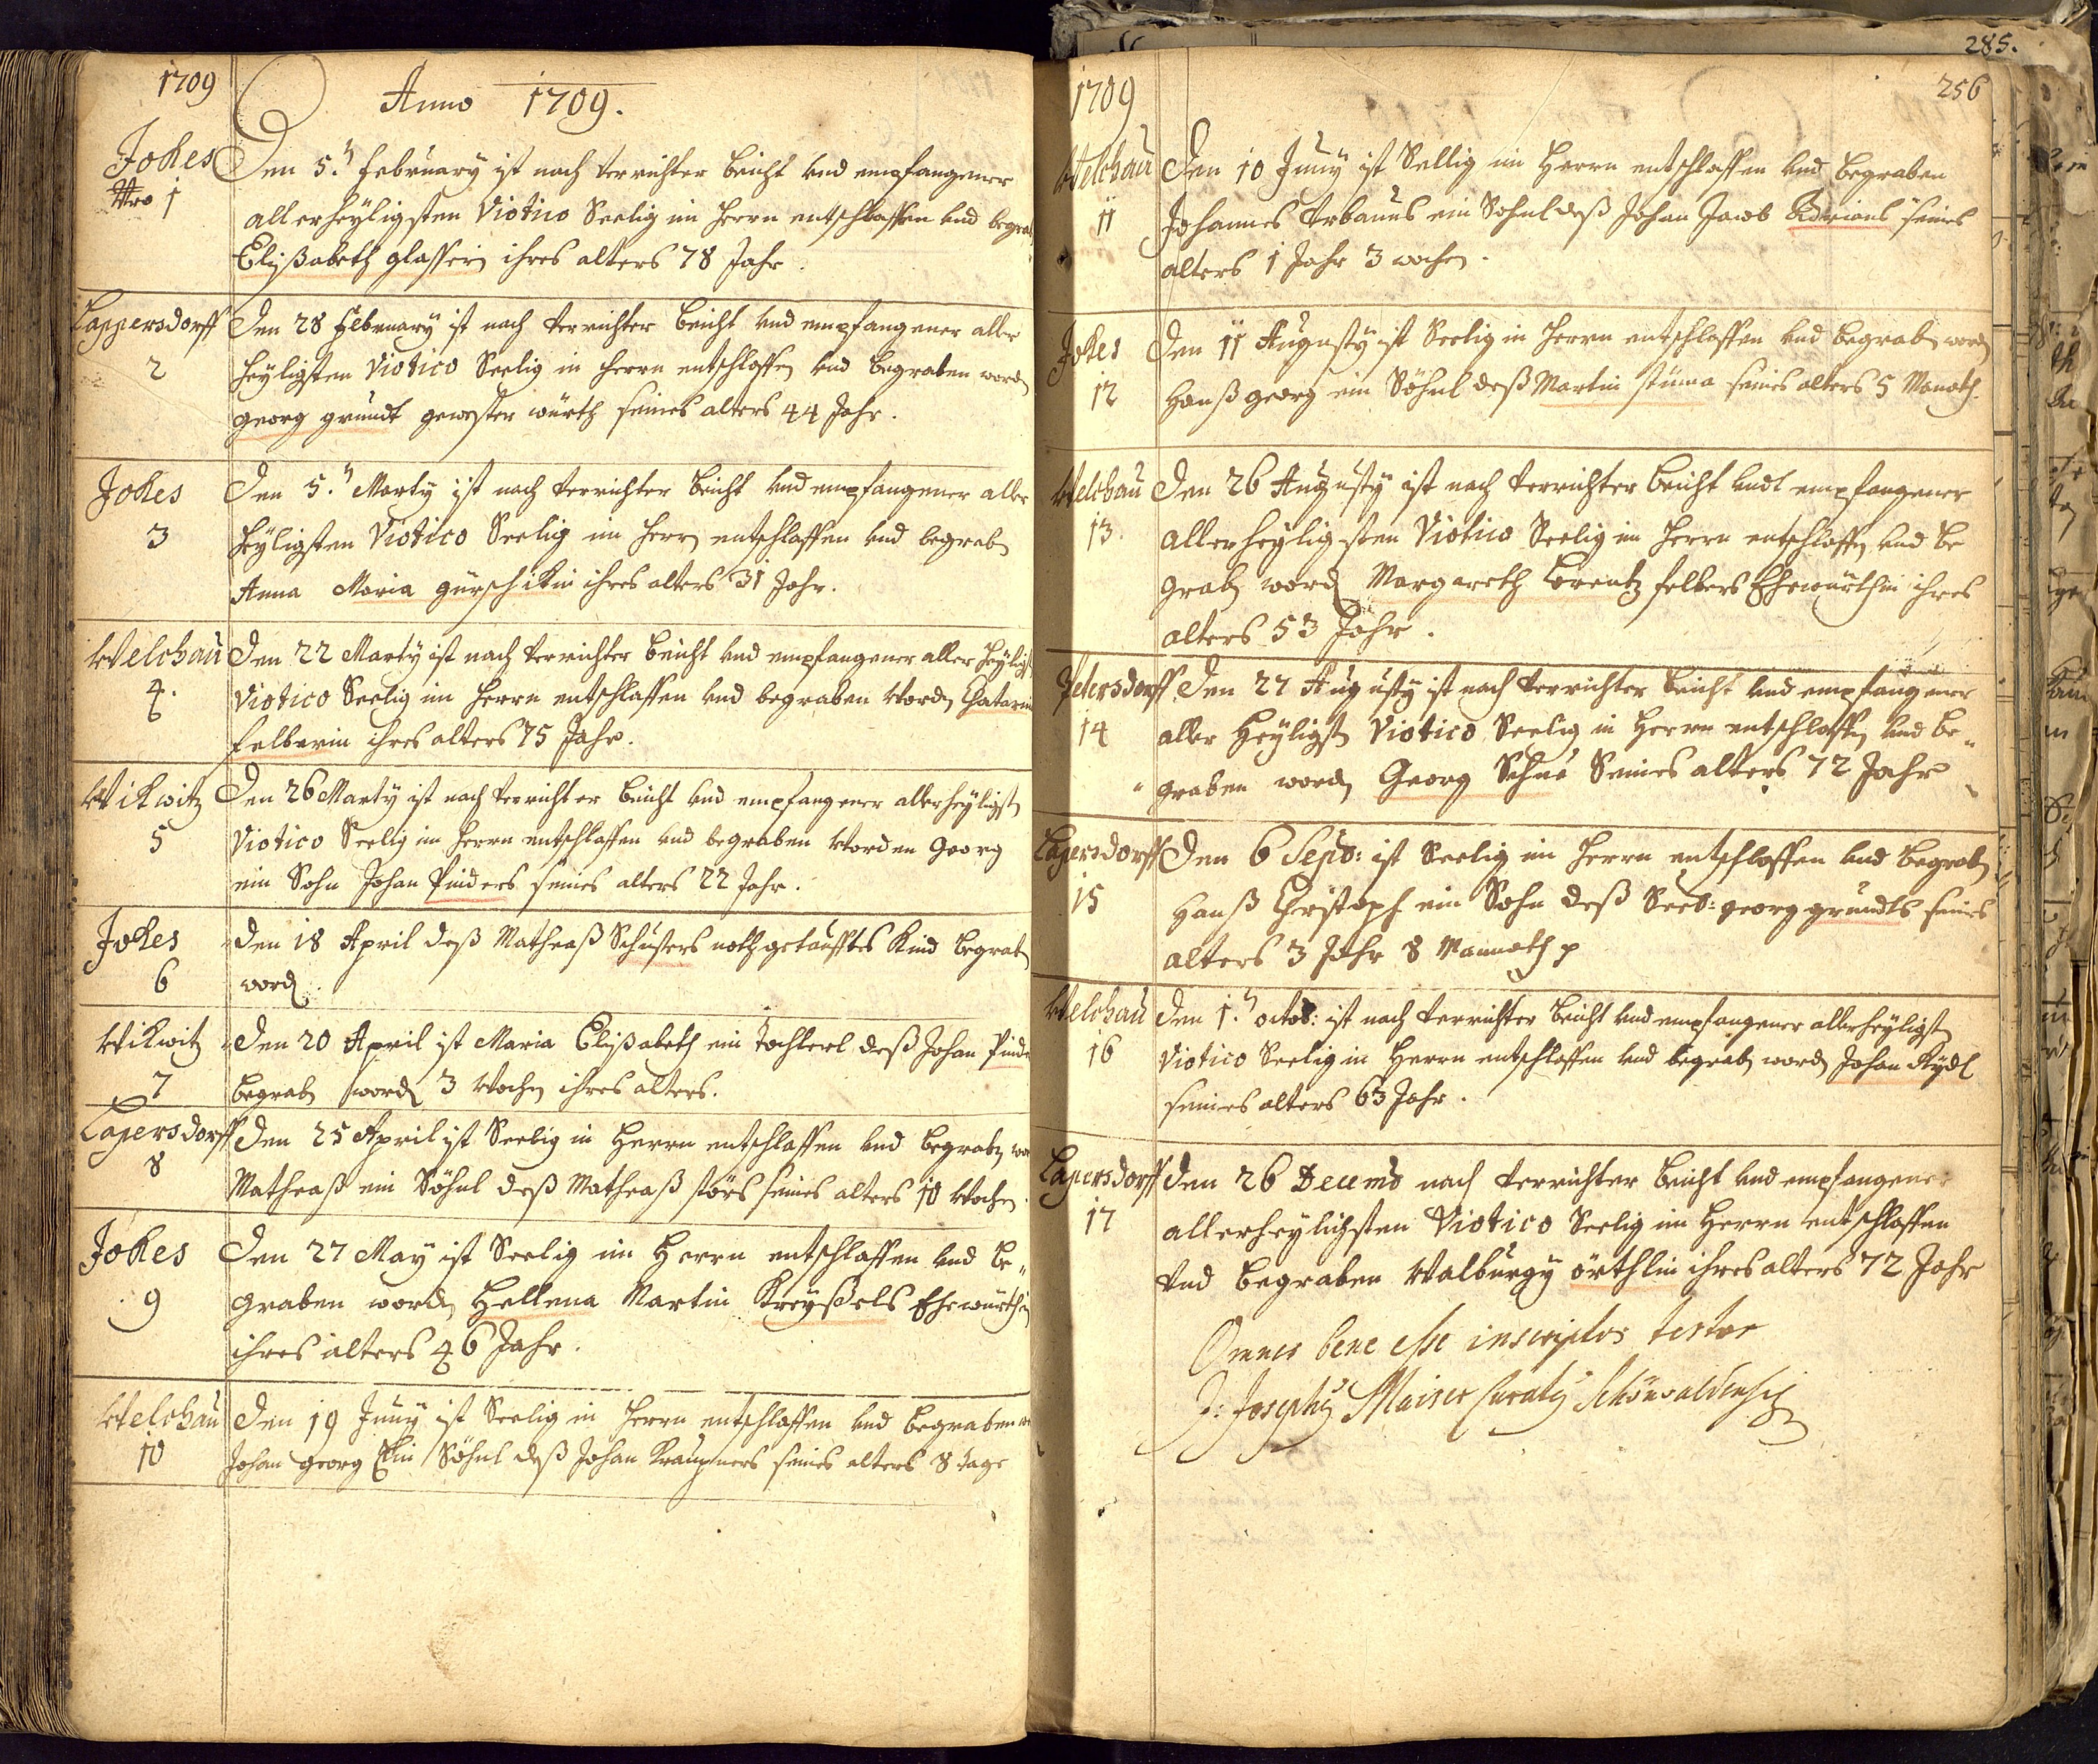 1709
Anno 1709.
Jokes
Nro 1
Den 5.ᵗ February ist nach verrichter beicht vnd empfangener
allerheyligsten Viatico Seelig im herrn entschlaffen vnd begrab
Elißabeth glasserin ihres alters 78 Jahr.
Lappersdorff
2
Den 28 February ist nach verrichter beicht vnd empfangener aller
heyligsten Viatico Seelig in herrn entschlaffen vnd begraben word
georg grundt gewester würth seines alters 44 Jahr.
Jokes
3
Den 5.ᵗ Marty ist nach verrichter beicht vnd empfangener aller
heyligsten Viatico Seelig im herrn entschlaffen vnd begrab
Anna Maria gürschikin ihres alters 31 Jahr.
Welchau
4.
Den 22 Marty ist nach verrichter beicht vnd empfangener aller heyligst
Viatico Seelig im herrn entschlaffen vnd begraben word Chatarin
felberin ihres alters 75 Jahr.
Wikwitz
5
Den 26 Marty ist nach verrichter beicht vnd empfangener allerheyligst
Viatico Seelig im herrn entschlaffen vnd begraben worden Georg
ein Sohn Johan Pinders seines alters 22 Jahr.
Jokes
6
Den 18 April deß Matheaß Schusters noth getaufftes Kind begrab
word.
Wikwitz
7
Den 20 April ist Maria Elißabeth ein Tochterl deß Johan Pinde
begrab word 3 wochen ihres alters.
Lapersdorff
8
Den 25 April ist Seelig in Herrn entschlaffen vnd begrab wor
Matheaß ein Söhnl deß Matheaß störs seines alters 10 wochen.
Jokes
9
Den 27 May ist Seelig im Herrn entschlaffen vnd be„
graben word Hellena Martin Kreyßels Ehewürthin
ihres alters 46 Jahr.
Welchau
10
Den 19 Juny ist Seelig in herrn entschlaffen vnd begraben
Johan georg Ein Söhnl deß Johan Kraupners seines alters 8 tage
285.
256
1709
Welchau
11
Den 10 Juny ist Sellig im Herrn entschlaffen vnd begraben
Johannes Vrbanus ein Sohnl deß Johan Jacob seines
alters 1 Jahr 3 wochen.
Jokes
12
Den 11 Augusty ist Seelig in herrn entschlaffen vnd begrab word
Hanß georg ein Söhnl deß Martin seines alters 5 Monath.
Welchau
13.
Den 26 Augusty ist nach verrichter beicht vndt empfangener
allerheyligsten Viatico Seelig im herrn entschlaffen vnd be
grab word Margareth Lorentz felbers Ehewürthin ihres
alters 53 Jahr.
Petersdorff
14
Den 27 Augusty ist nach verrichter beicht vnd empfangener
aller Heyligst Viatico Seelig in herrn entschlaffen vnd be„
graben word Georg Seines alters 72 Jahr
Lapersdorff
15
Den 6 Sepb: ist Seelig im herrn entschlaffen vnd begrab
Hanß Christoph ein Sohn deß Seel: georg grundts seines
alters 3 Jahr 8 Mannath
Welchau
16
Den 1.ᵗ octob: ist nach verrichter beicht vnd empfangener allerheyligst
Viatico Seelig in Herrn entschlaffen vnd begrab word Johan Rydl
seines alters 63 Jahr.
Lapersdorff
17
Den 26 Decemb nach verrichter beicht vnd empfangener
allerheylichsten Viatico Seelig im herrn entschlaffen
Vnd begraben Walburgy örthlin ihres alters 72 Jahr
Omnes bene esse inscriptos testor
Josephus Maiser Curatus Schönwaldensis